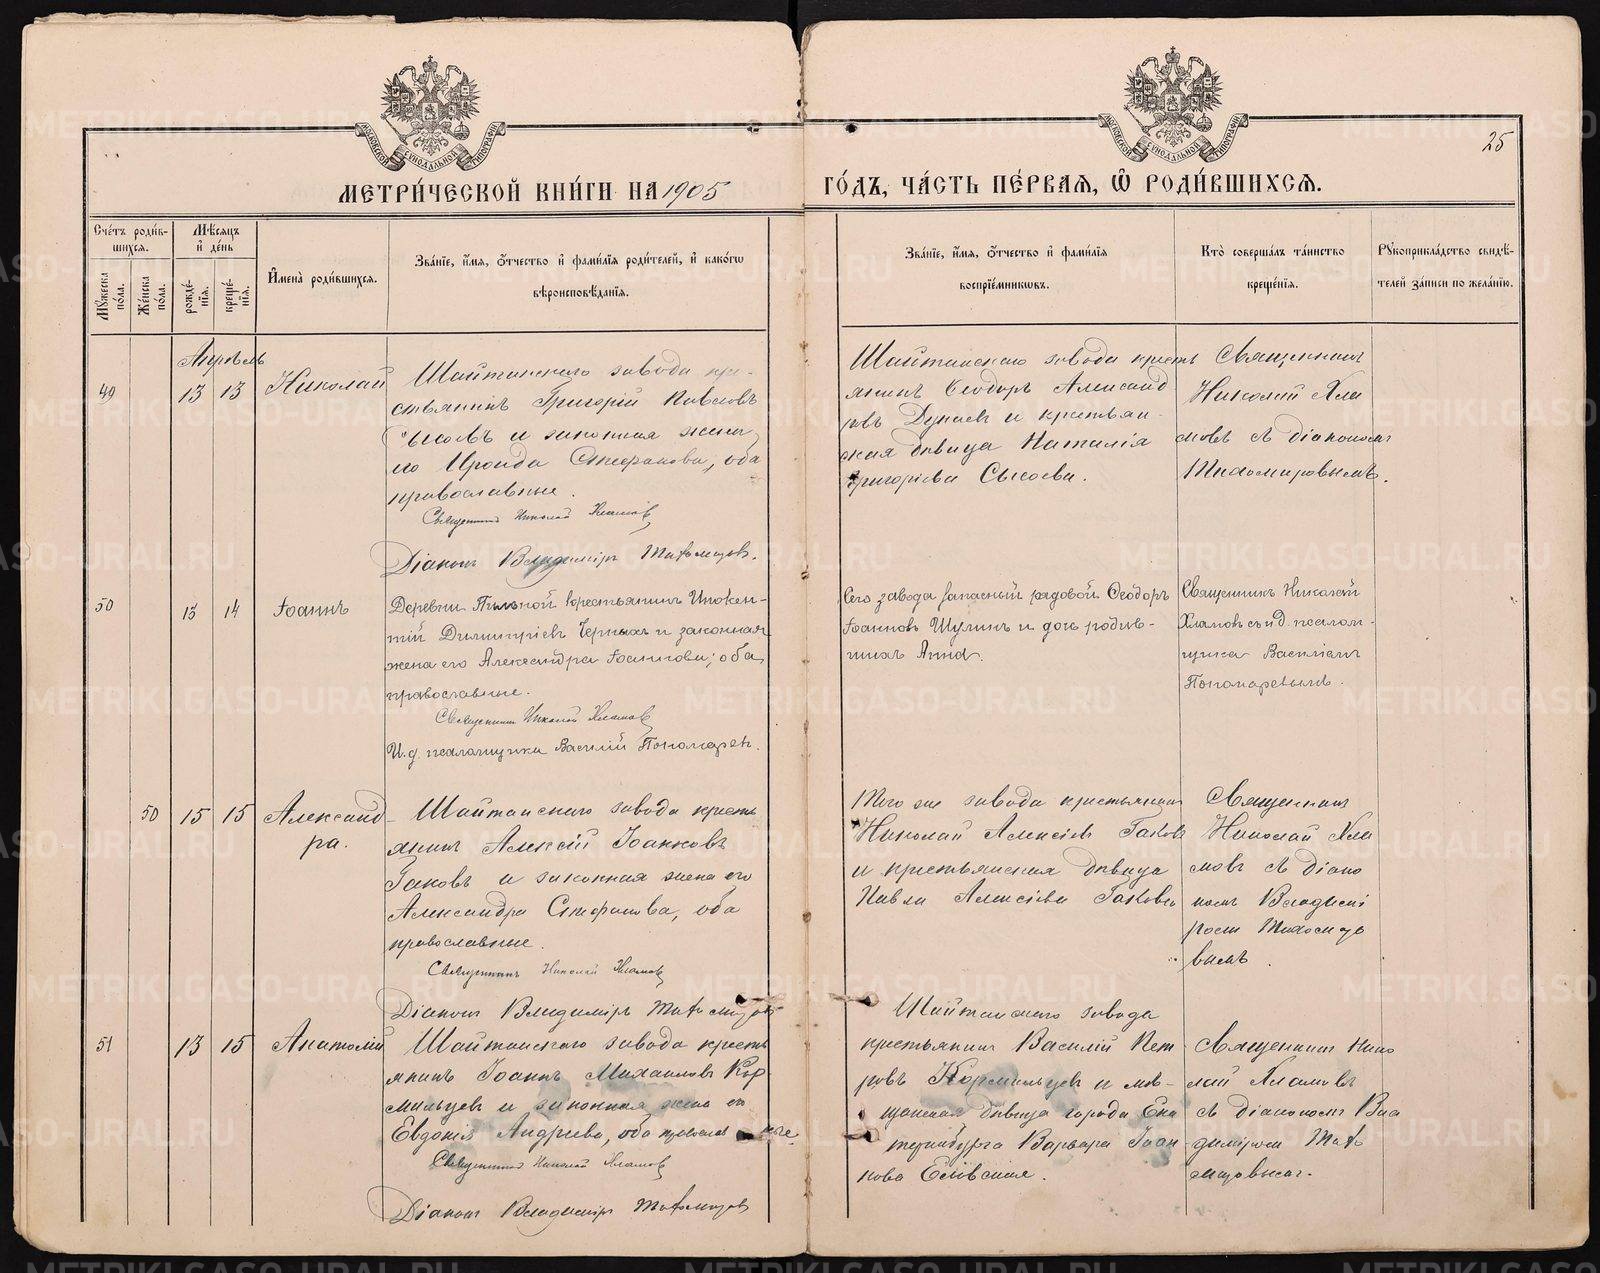 МЕТРИ́ЧЕСКОЙ КНИ́ГИ НА 1905
ГО́ДЪ, ЧА́СТЬ ПЕ́РВАЯ, Ѽ РОДИ́ВШИХСЯ.
25
МОСКОВСКОЙ СѴНОДАЛЬНОЙ ТИПОГРАФІИ
МОСКОВСКОЙ СѴНОДАЛЬНОЙ ТИПОГРАФІИ
Сче́тъ роди́в-
шихся.
Мꙋ́жеска по́ла.
Же́нска по́ла.
Мѣ́сяцъ
и҆ де́нь
рожде́-
нїя.
креще́-
нїя.
И҆мена̀ роди́вшихся.
Зва́нїе, и҆́мя, ѻ҆́тчество и҆ фами́лїя роди́телей, и҆ како́гѡ
вѣроисповѣ́данїя.
Зва́нїе, и҆́мя, ѻ҆́тчество и҆ фами́лїя
воспрїе́мникѡвъ.
Кто̀ соверша́лъ та́инство
креще́нїя.
Рꙋкоприкла́дство свидѣ́-
телей за́писи по жела́нїю.
Апрѣль
49
13 13
Николай
Шайтанского завода кре-
стьянинъ Григорій Павловъ
Сысоевъ и законная жена
его Ироида Стефанова, оба
православные.
Священникъ Николай Хламовъ
Діаконъ Владиміръ Тихомировъ.
Шайтанскаго завода кресть
янинъ Ѳеодоръ Александ
ровъ Дунаевъ и крестьян-
ская дѣвица Наталія
Григоріева Сысоева.
Священникъ
Николай Хла
мовъ съ діакономъ
Тихомировымъ.
50
13 14
Іоаннъ
Деревни Пильной крестьянинъ Инокен-
тій Димитріевъ Черныхъ и законная
жена его Александра Іоаннова; оба
православные.
Священникъ Николай Хламовъ
И.д. псаломщика Василій Пономаревъ.
Сего завода запасный рядовой Ѳеодоръ
Іоанновъ Шулинъ и дочь родив-
шихъ Анна.
Священникъ Николай
Хламовъ съ и.д. псалом-
щика Василіемъ
Пономаревымъ.
50
15 15
Александ-
ра.
Шайтанскаго завода кресть
янинъ Алексій Іоанновъ
Гаковъ и законная жена его
Александра Стефанова, оба
православные.
Священникъ Николай Хламовъ
Діаконъ Владиміръ Тихомировъ
Того же завода крестьянинъ
Николай Алексіевъ Гаковъ
и крестьянская дѣвица
Павла Алексіева Гакова
Священникъ
Николай Хла
мовъ съ діако
номъ Владимі
ромъ Тихомиро
вымъ.
51
13 15
Анатолій
Шайтанскаго завода кресть
янинъ Іоаннъ Михаиловъ Кор-
мильцевъ и законная жена его
Евдокія Андреева, оба православные.
Священникъ Николай Хламовъ
Діаконъ Владиміръ Тихомировъ
Шайтанскаго завода
крестьянинъ Василій Пет-
ровъ Кормильцевъ и мѣ-
щанская дѣвица города Ека
теринбурга Варвара Іоан-
нова
Священникъ Нико
лай Хламовъ
съ діакономъ Вла
диміромъ Тихо
мировымъ.